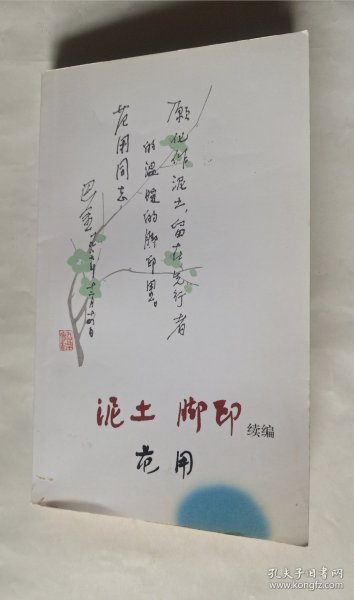 愿化作泥土，留在先行者
的温暖的脚印里。
范用同志
巴金
泥土 脚印 续编
范用
孔夫子旧书网